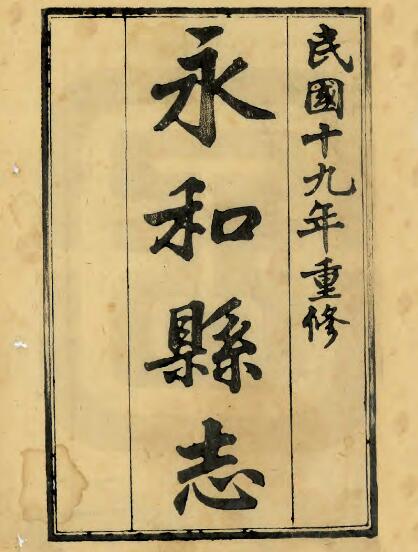 民國十九年重修
永和縣志